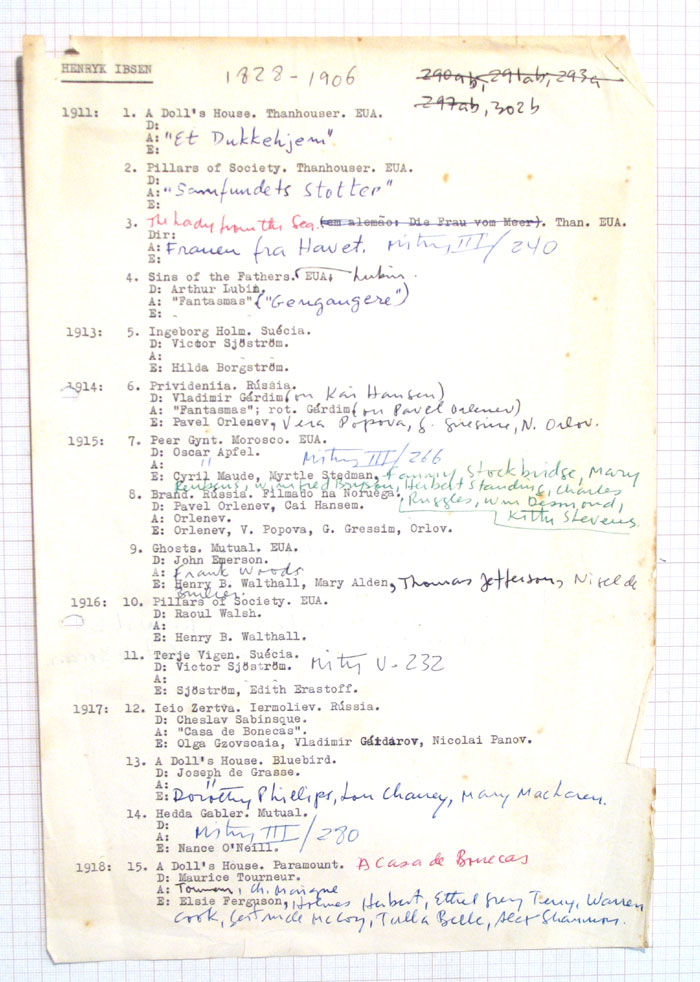 HENRYK IBSEN
1828 - 1906
290ab, 291ab, 293a
297ab, 302b
1911: 1. A Doll's House. Thanhouser. EUA.
D:
A: "Et Dukkehjem".
E:
2. Pillars of Society. Thanhouser. EUA.
D:
A: "Samfundets Stotter"
E:
3. The Lady from the Sea. (em alemão: Die Frau vom Meer). Than. EUA.
Dir:
A: Fruen fra Havet. Mitry III/240
E:
4. Sins of the Fathers. EUA. Lubin.
D: Arthur Lubin.
A: "Fantasmas" ("Gengangere")
E: -
1913: 5. Ingeborg Holm. Suécia.
D: Victor Sjöström.
A:
E: Hilda Borgström.
1914: 6. Privideniia. Rússia.
D: Vladimir Gárdim (ou Kai Hansen)
A: "Fantasmas"; rot. Gárdim (ou Pavel Orlenev)
E: Pavel Orlenev, Vera Popova, G. Gressine, N. Orlov.
1915: 7. Peer Gynt. Morosco. EUA.
D: Oscar Apfel.
A: " Mitry III/266
E: Cyril Maude, Myrtle Stedman, Fanny Stockbridge, Mary
Reubens, Winifred Bryson, Herbert Standing, Charles
Ruggles, Wm Desmond,
Kitty Stevens.
8. Brand. Rússia. Filmado na Noruega.
D: Pavel Orlenev, Cai Hansem.
A: Orlenev.
E: Orlenev, V. Popova, G. Gressim, Orlov.
9. Ghosts. Mutual. EUA.
D: John Emerson.
A: Frank Woods
E: Henry B. Walthall, Mary Alden, Thomas Jefferson, Nigel de
Brulier.
1916: 10. Pillars of Society. EUA.
D: Raoul Walsh.
A:
E: Henry B. Walthall.
11. Terje Vigen. Suécia.
D: Victor Sjöström. Mitry V-232
A:
E: Sjöström, Edith Erastoff.
1917: 12. Ieio Zertva. Iermoliev. Rússia.
D: Cheslav Sabinsque.
A: "Casa de Bonecas".
E: Olga Gzovscaia, Vladimir Gáidárov, Nicolai Panov.
13. A Doll's House. Bluebird.
D: Joseph de Grasse.
A: "
E: Dorothy Phillips, Lon Chaney, Mary MacLaren.
14. Hedda Gabler. Mutual.
D:
A: Mitry III/280
E: Nance O'Neill.
1918: 15. A Doll's House. Paramount. A Casa de Bonecas
D: Maurice Tourneur.
A: Tourneur, Ch. Maigne
E: Elsie Ferguson, Holmes Herbert, Ethel Grey Terry, Warren
Cook, Gertrude McCoy, Tulla Belle, Alex Shannon.